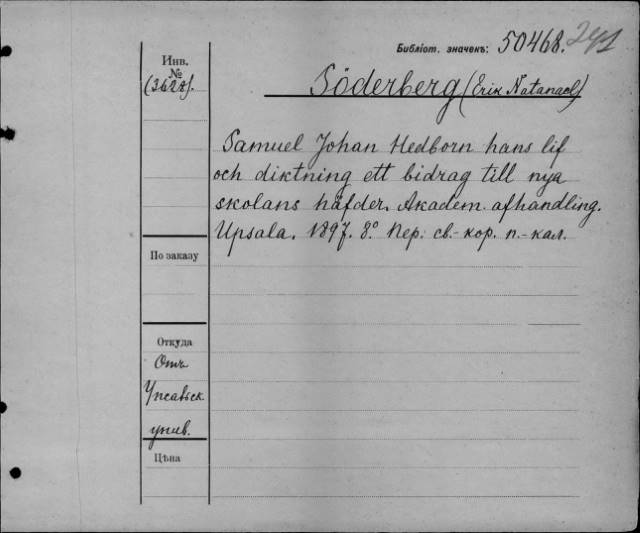 Библіот. значекъ: 50468. 241
Инв.
№
(3627).
Söderberg (Erik Natanael)
Samuel Johan Hedborn hans lif
och diktning ett bidrag till nya
skolans häfder. Akadem. afhandling.
Upsala. 1897. 8.° Пер. св.-кор. п.-кал.
По заказу
Откуда
Отъ
Упсальск.
унив.
Цѣна